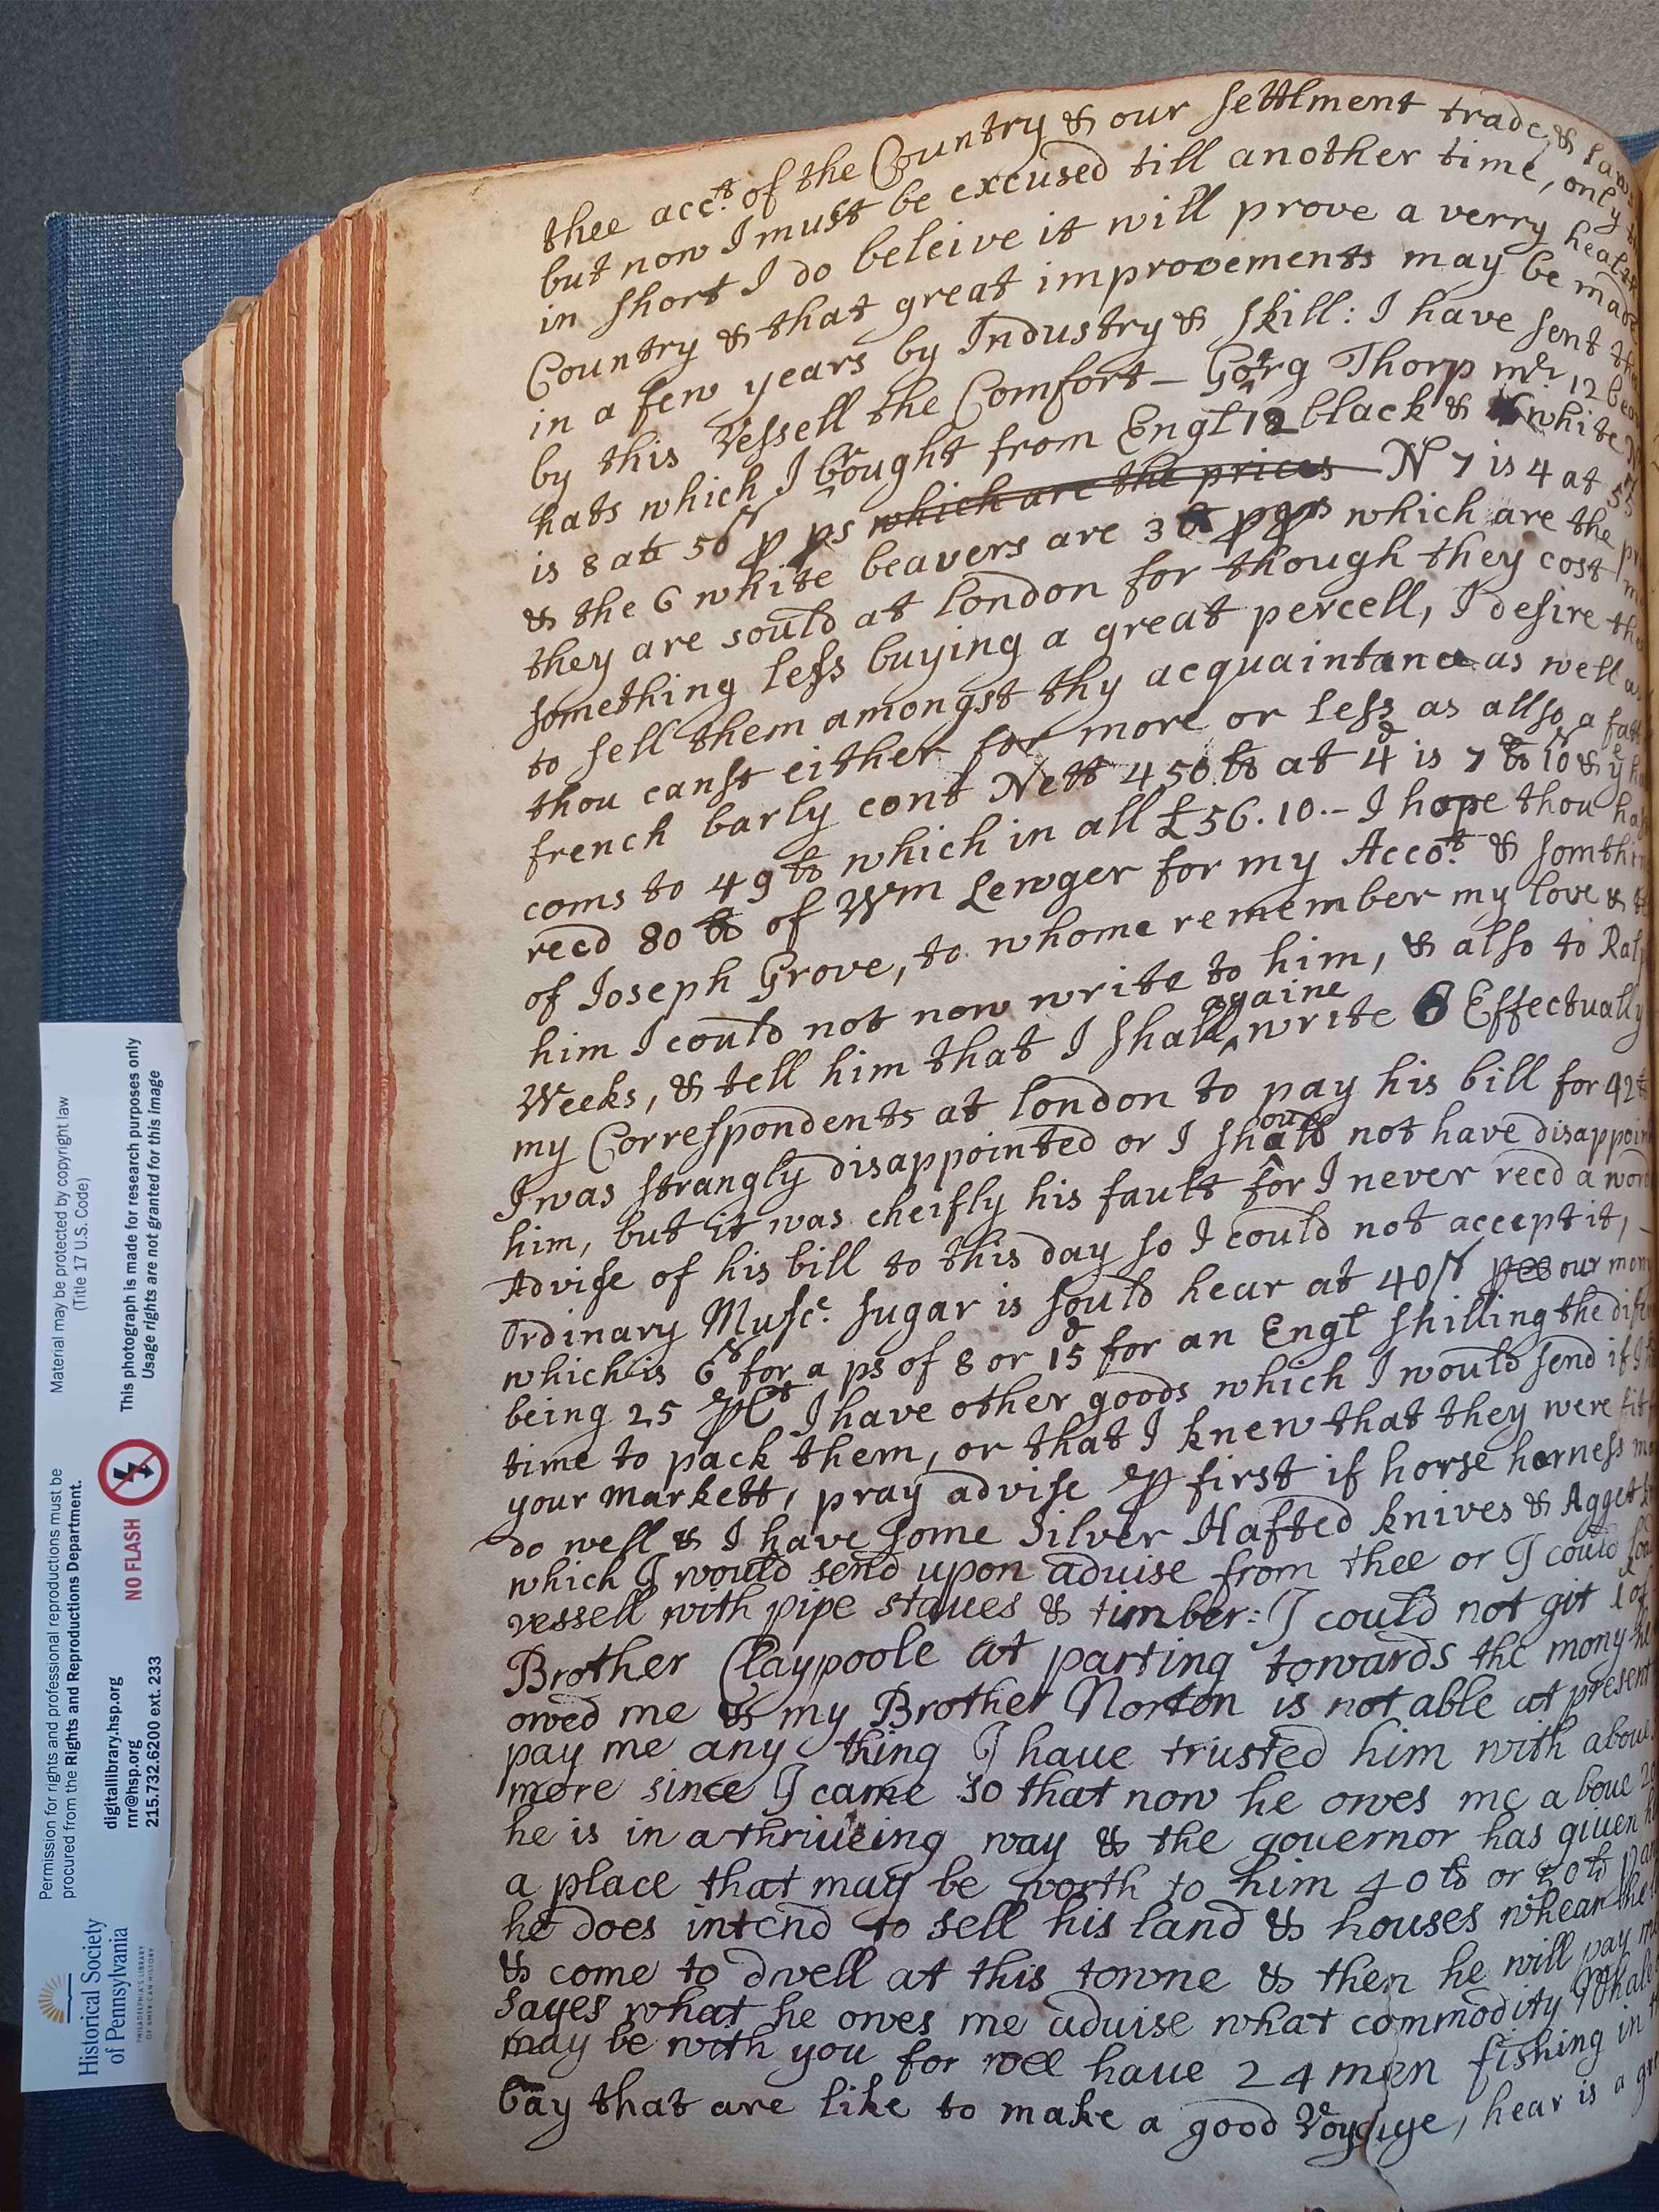 thee acc:t of the Country & our settlment trade & law
but now I must be excused till another time, only
in short I do beleive it will prove a verry health
Country & that great improovements may be made
in a few years by Industry & skill: I have sent the
by this Vessell the Comfort — Georg Thorp mr. 12 beav
hats which I brought from Engl 12 black & 6 white N
is 8 att 50s p ps which are the prices N 7 is 4 at 55
& the 6 white beavers are 3 p ps which are the pr
they are sould at London for though they cost me
something less buying a great percell, I desire the
to sell them amongst thy acquaintance as well as
thou canst either for more or less as allso a fatt
french barly cont Nett 450 lb at 4d is 7 lb 10s & ye ha
coms to 49 lb which in all £56.10.- I hope thou has
recd 80 lb of Wm Lewger for my Acco:t & somthin
of Joseph Grove, to whome remember my love & te
him I could not now write to him, & also to Ralp
Weeks, & tell him that I shall againe write Effectually
my Correspondents at London to pay his bill for 42 lb
I was strangly disappointed or I should not have disappoin
him, but it was cheifly his fault for I never recd a word
Advise of his bill to this day so I could not accept it, —
Ordinary Musc:e sugar is sould hear at 40s per our mon
which is 6s for a ps of 8 or 15d for an Engl shilling the diff
being 25 p Ct I have other goods which I would send if I h
time to pack them, or that I knew that they were fitt
your markett, pray advise p first if horse harness m
do well & I have some Silver Hafted knives & Agget
which I would send upon aduise from thee or I could loa
vessell with pipe staues & timber: I could not git 1 of
Brother Claypoole at parting towards the mony he
owed me & my Brother Norton is not able at present
pay me any thing I haue trusted him with aboue
more since I came so that now he owes me a boue 20
he is in a thriueing way & the gouernor has giuen h
a place that may be worth to him 40 lb or 50 lb p an
he does intend to sell his land & houses whear he
& come to dwell at this towne & then he will pay me
sayes what he owes me aduise what commodity Whale
may be with you for wee haue 24 men fishing in th
bay that are like to make a good Voyage, hear is a gre
Historical Society
of Pennsylvania
PHILADELPHIA'S LIBRARY
OF AMERICAN HISTORY
Permission for rights and professional reproductions must be
procured from the Rights and Reproductions Department.
digitallibrary.hsp.org
rnr@hsp.org
215.732.6200 ext. 233
NO FLASH
Material may be protected by copyright law
(Title 17 U.S. Code)
This photograph is made for research purposes only
Usage rights are not granted for this image